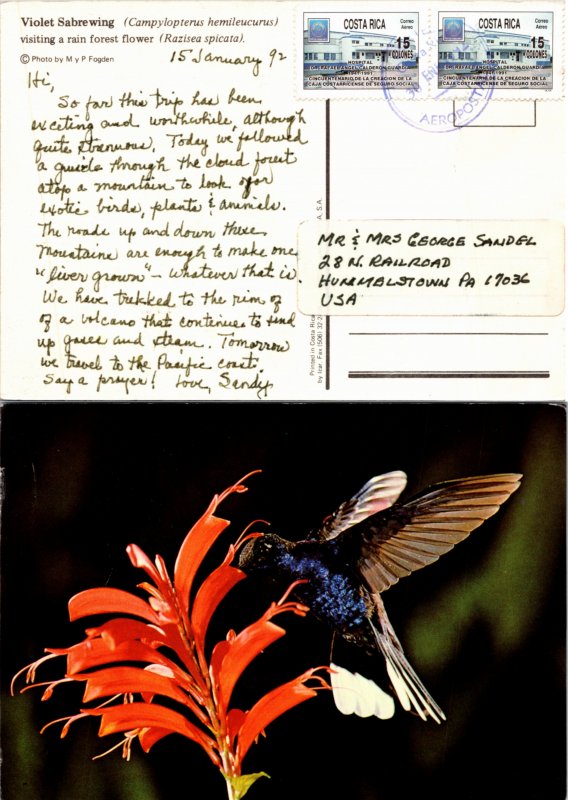 Violet Sabrewing (Campylopterus hemileucurus)
visiting a rain forest flower (Razisea spicata).
© Photo by M y P Fogden
15 January 92
Hi,
So far this trip has been
exciting and worthwhile, although
quite strenuous. Today we followed
a guide through the cloud forest
atop a mountain to look for
exotic birds, plants & animals.
The roads up and down these
mountains are enough to make one
"liver grown" - whatever that is.
We have trekked to the rim of
of a volcano that continues to send
up gases and steam. Tomorrow
we travel to the Pacific coast.
Say a prayer! Love, Sandy
Printed in Costa Rica
by Icar. Fax (506) 32 2
S.A.
COSTA RICA
Correo
Aéreo
15
COLONES
HOSPITAL
DR. RAFAEL ANGEL CALDERON GUARDIA
(1941-1991)
CINCUENTENARIO DE LA CREACION DE LA
CAJA COSTARRICENSE DE SEGURO SOCIAL
COSTA RICA
Correo
Aéreo
15
COLONES
HOSPITAL
DR. RAFAEL ANGEL CALDERON GUARDIA
(1941-1991)
CINCUENTENARIO DE LA CREACION DE LA
CAJA COSTARRICENSE DE SEGURO SOCIAL
AEROPOST
MR & MRS GEORGE SANDEL
28 N. RAILROAD
HUMMELSTOWN PA 17036
USA